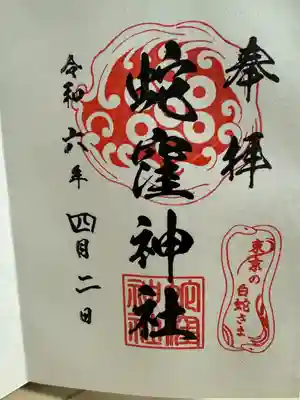 奉拝
蛇窪神社
令和六年
四月二日
東京の
白蛇さま
蛇窪
神社